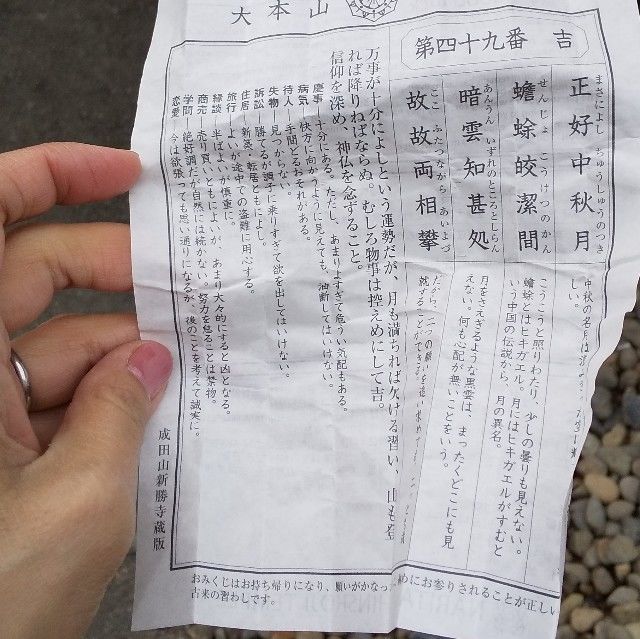 大本山
第四十九番 吉
まさによし ちゅうしゅうのつき
正好中秋月
せんじょ こうけつのかん
蟾蜍皎潔間
あんうん いずれのところとしらん
暗雲知甚処
ここ ふたつながら あいよづ
故故両相攀
中秋の名月は
しい。
こうこうと照りわたり、少しの曇りも見えない。
蟾蜍とはヒキガエル。月にはヒキガエルがすむと
いう中国の伝説から、月の異名。
月をさえぎるような黒雲は、まったくどこにも見
えない。何も心配が無いことをいう。
だから、二つの願いを追い求めても
就することができる。
万事が十分によしという運勢だが、月も満ちれば欠ける習い、山も登
れば降りねばならぬ。むしろ物事は控えめにして吉。
信仰を深め、神仏を念ずること。
慶事―十分にある。ただし、あまりよすぎて危うい気配もある。
病気―快方に向かうように見えても、油断してはいけない。
待人―手間どるおそれがある。
失物―見つからない。
訴訟―勝てるが調子に乗りすぎて欲を出してはいけない。
住居―新築・転居ともによし。
旅行―よいが途中での盗難に用心する。
縁談―半ばよいが慎重に。
商売―売り買いともによいが、あまり大々的にすると凶となる。
学問―絶好調だが自然には続かない。努力を怠ることは禁物。
恋愛―今は欲張っても思い通りになるが、後のことを考えて誠実に。
成田山新勝寺蔵版
おみくじはお持ち帰りになり、願いがかなっ
めにお参りされることが正しい
古来の習わしです。